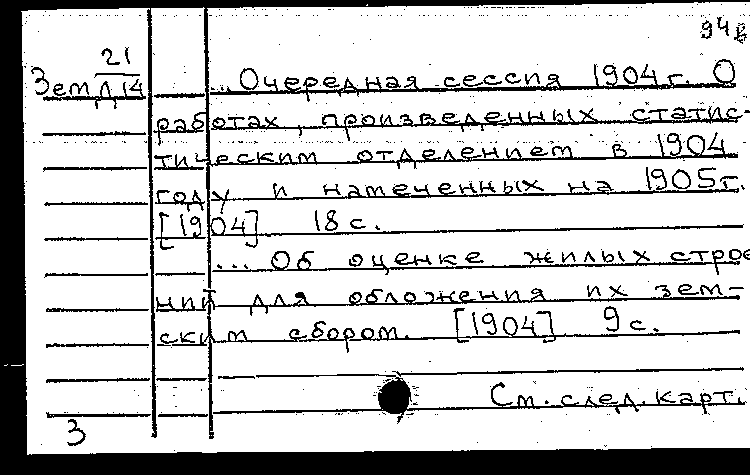 94в
21
Зем Д14
...Очередная сессия 1904 г. О
работах, произведенных статис-
тическим отделением в 1904
году и намеченных на 1905 г.
[1904] 18 с.
... Об оценке жилых строе
ний для обложения их зем-
ским сбором. [1904] 9 с.
См. след. карт.
3